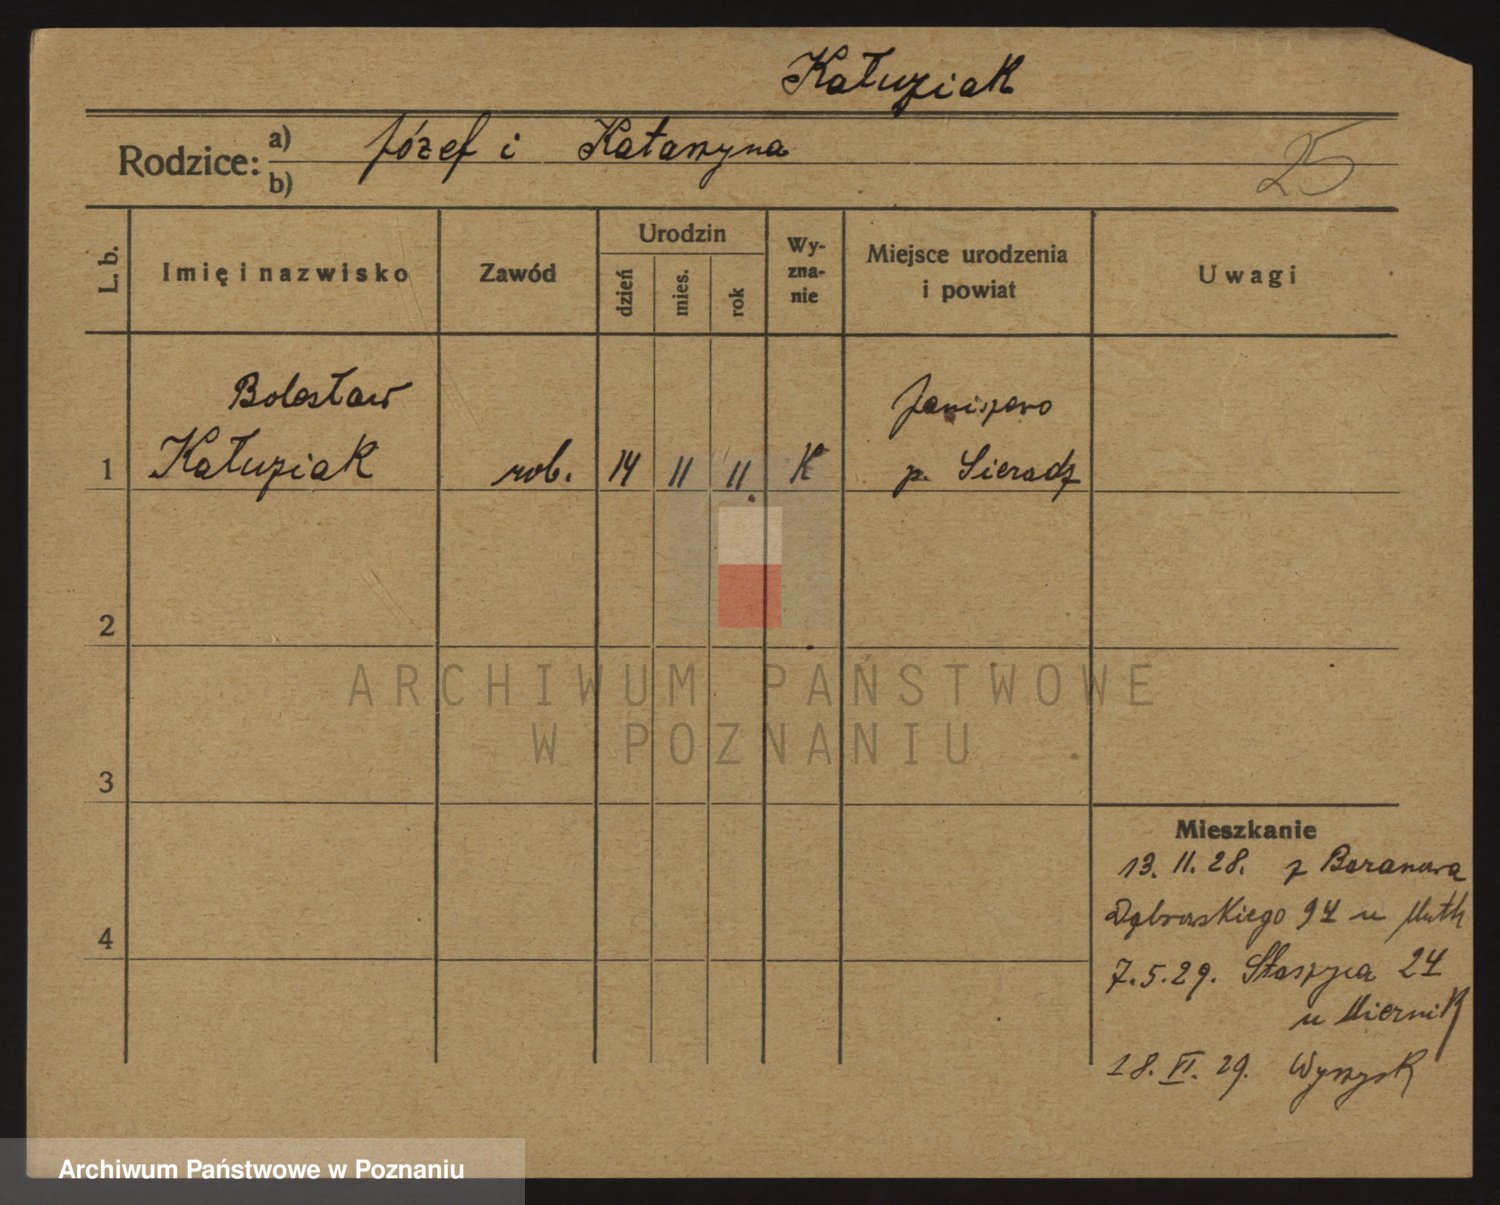 Kałuziak
Rodzice: a) Józef i Katarzyna
b)
25
L. b.
Imię i nazwisko
Zawód
Urodzin
dzień
mies.
rok
Wy-
zna-
nie
Miejsce urodzenia
i powiat
Uwagi
Bolesław
Janiszewo
1 Kałuziak rob. 14 11 11. K p. Sieradz
2
ARCHIWUM PAŃSTWOWE
W POZNANIU
3
Mieszkanie
13. II. 28. z Baranowa
4
Dąbrowskiego 94 u
7.5.29. Staszyca 24
u Miernik
18. VI. 29. Wyrzysk
Archiwum Państwowe w Poznaniu